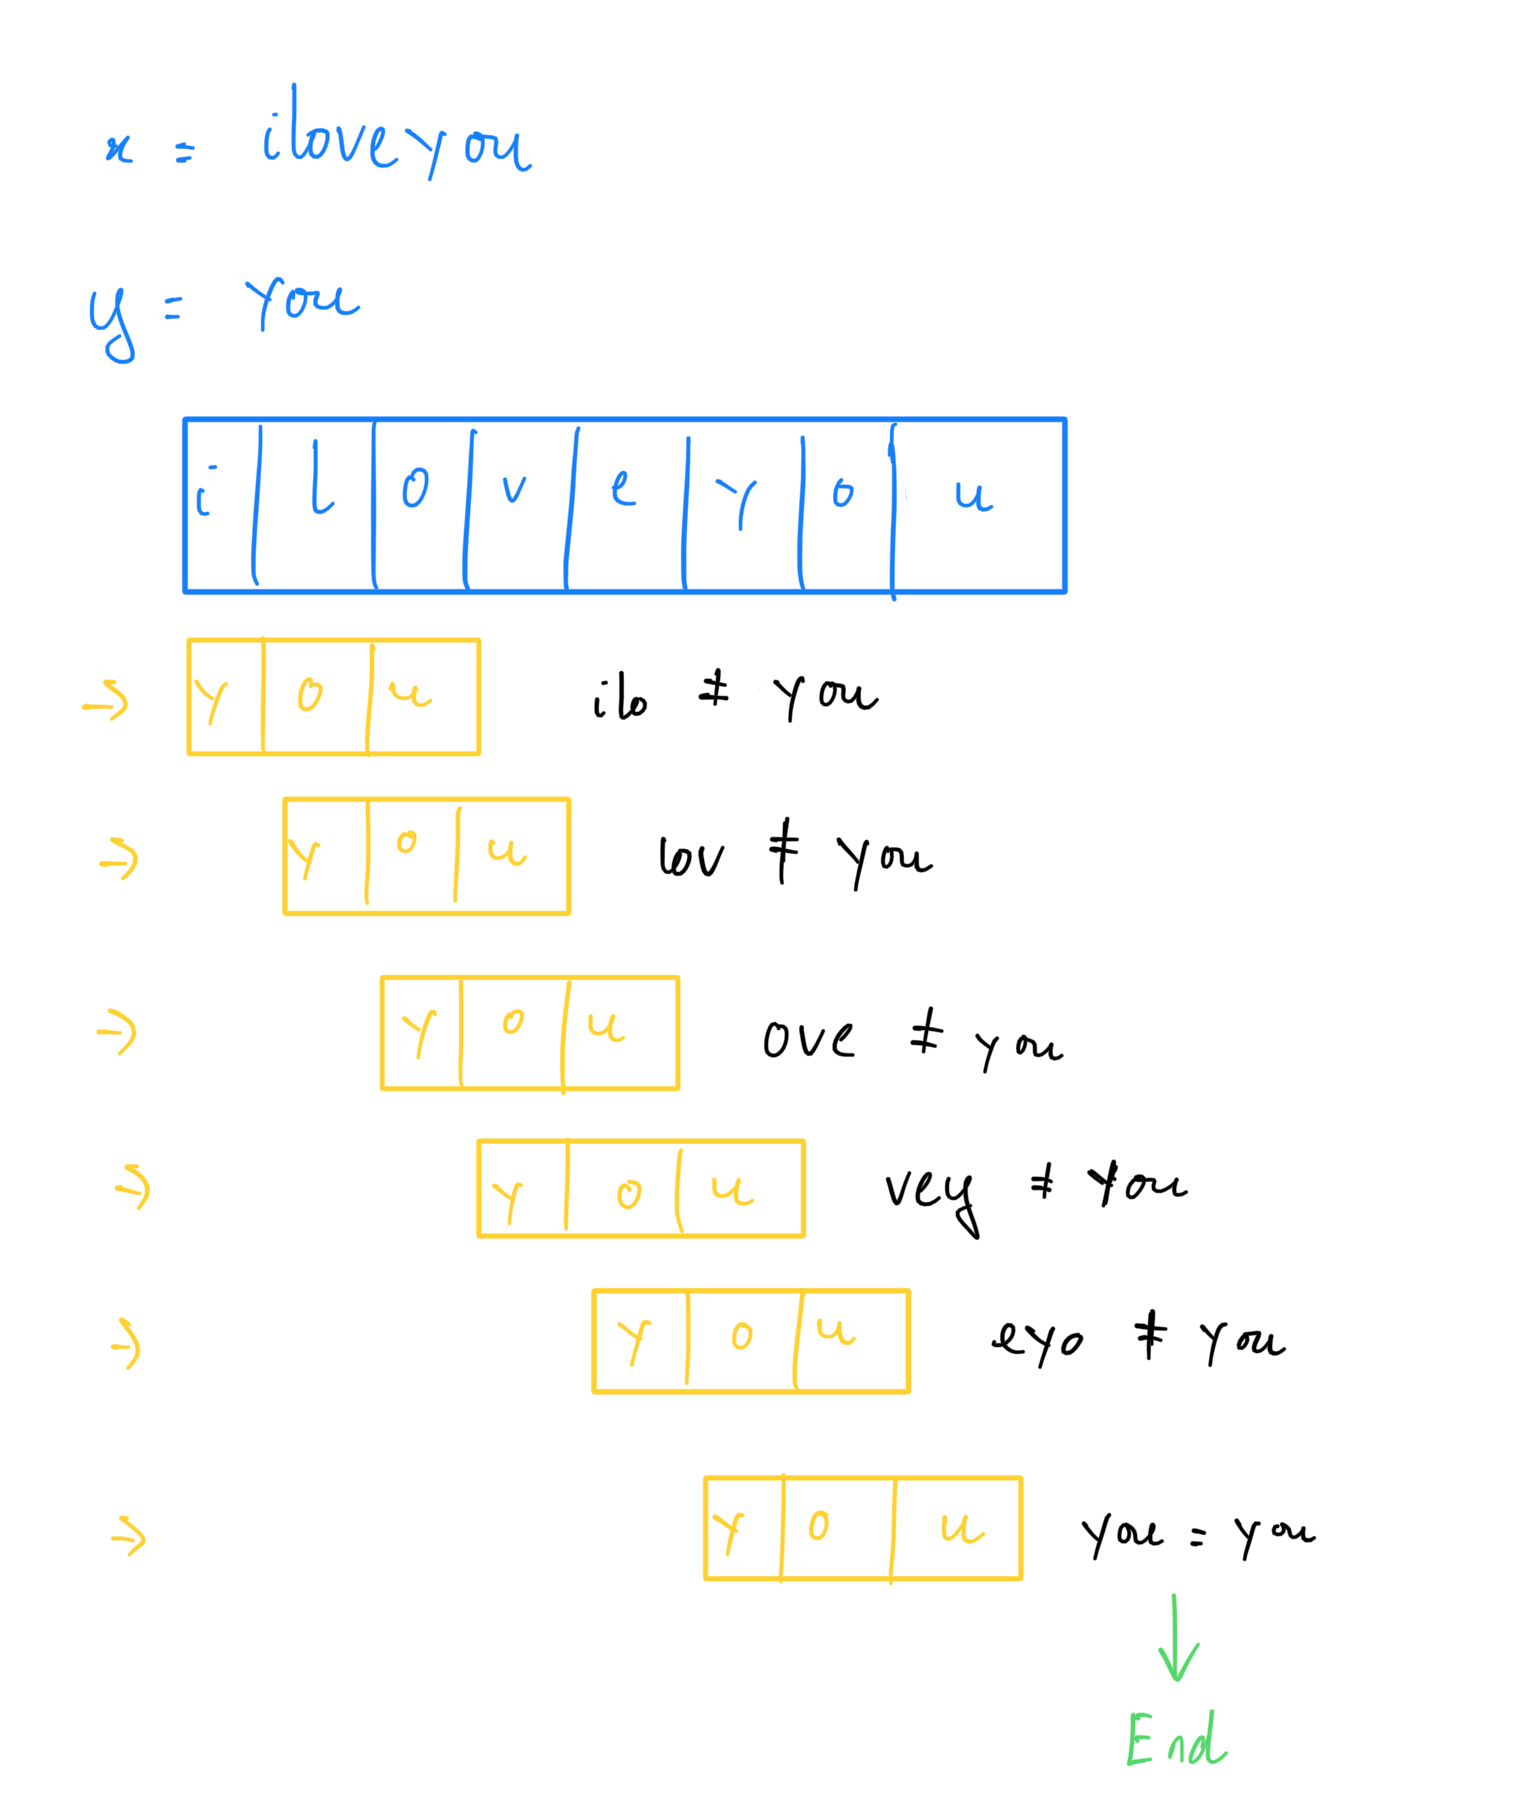 x = iloveyou
y = you
i l o v e y o u
→ y o u ilo ≠ you
→ y o u lov ≠ you
→ y o u ove ≠ you
→ y o u vey ≠ you
→ y o u eyo ≠ you
→ y o u you = you
↓
End